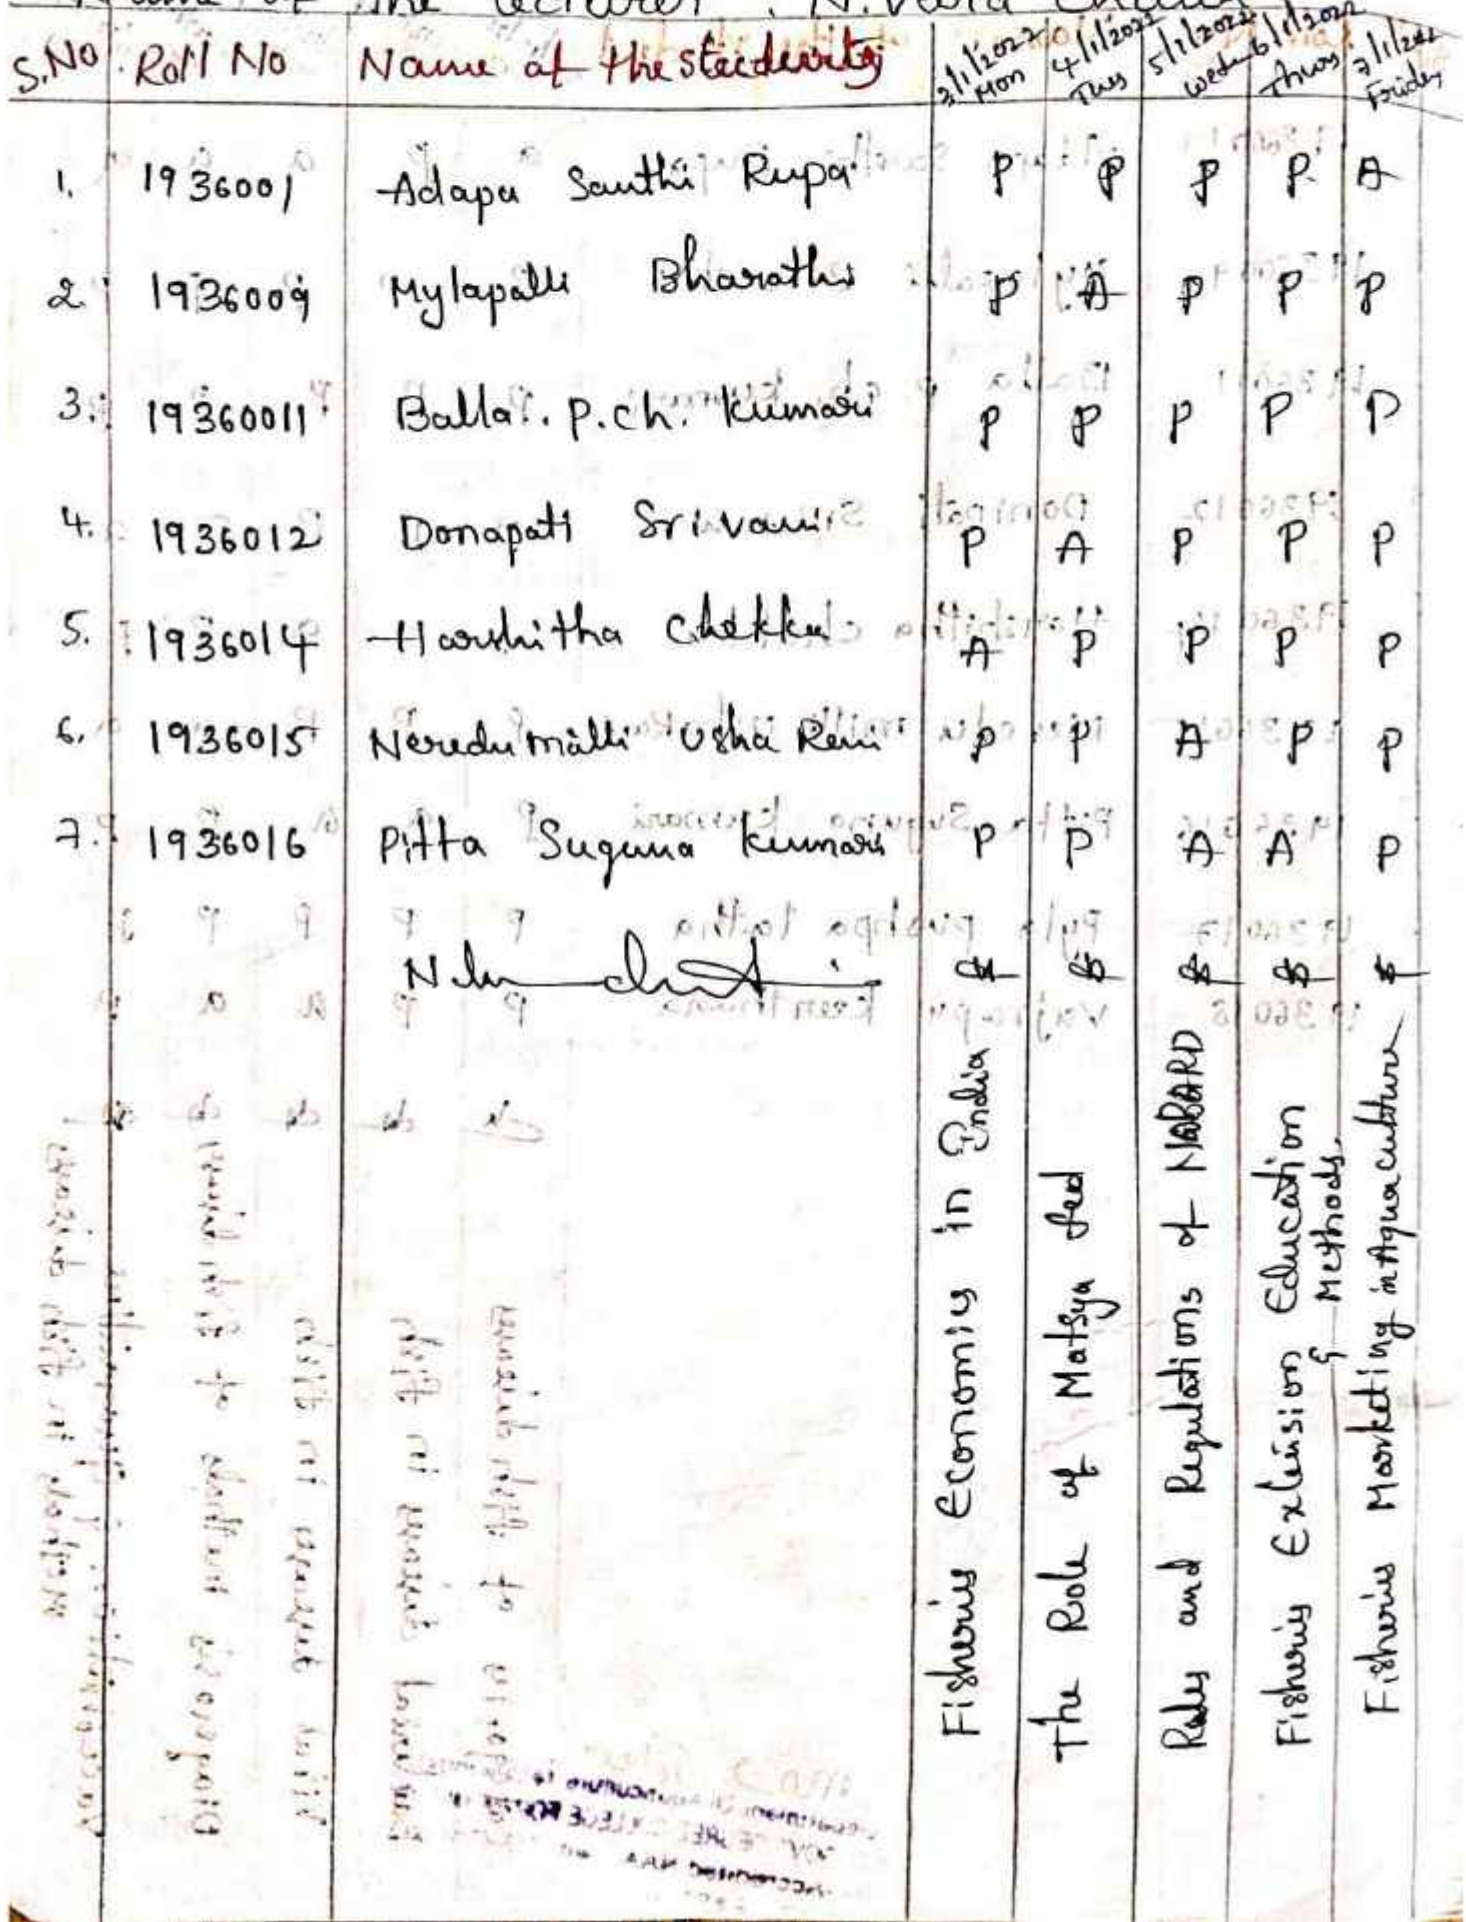 Name of the lecturer : N. Veera Chari
S.No Roll No Name of the students 3/1/2022 Mon 4/1/2022 Tues 5/1/2022 Wed 6/1/2022 Thurs 7/1/2022 Friday
1. 1936001 Adapa Santhi Rupa P P P P A
2. 1936009 Mylapalli Bharathi P A P P P
3. 19360011 Balla. P.ch. Kumari P P P P P
4. 1936012 Donapati Srivani P A P P P
5. 1936014 Harshitha Chekka A P P P P
6. 1936015 Neredumalli Usha Rani P P A P P
7. 1936016 Pitta Suguna Kumari P P A A P
Fisheries Economics in India
The Role of Matsya fed
Rules and Regulations of NABARD
Fisheries Extension Education
& Methods.
Fisheries Marketing in Aquaculture